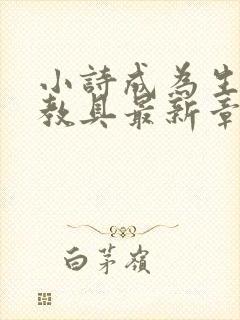 小詩成為生
教具最新章
白茅嶺